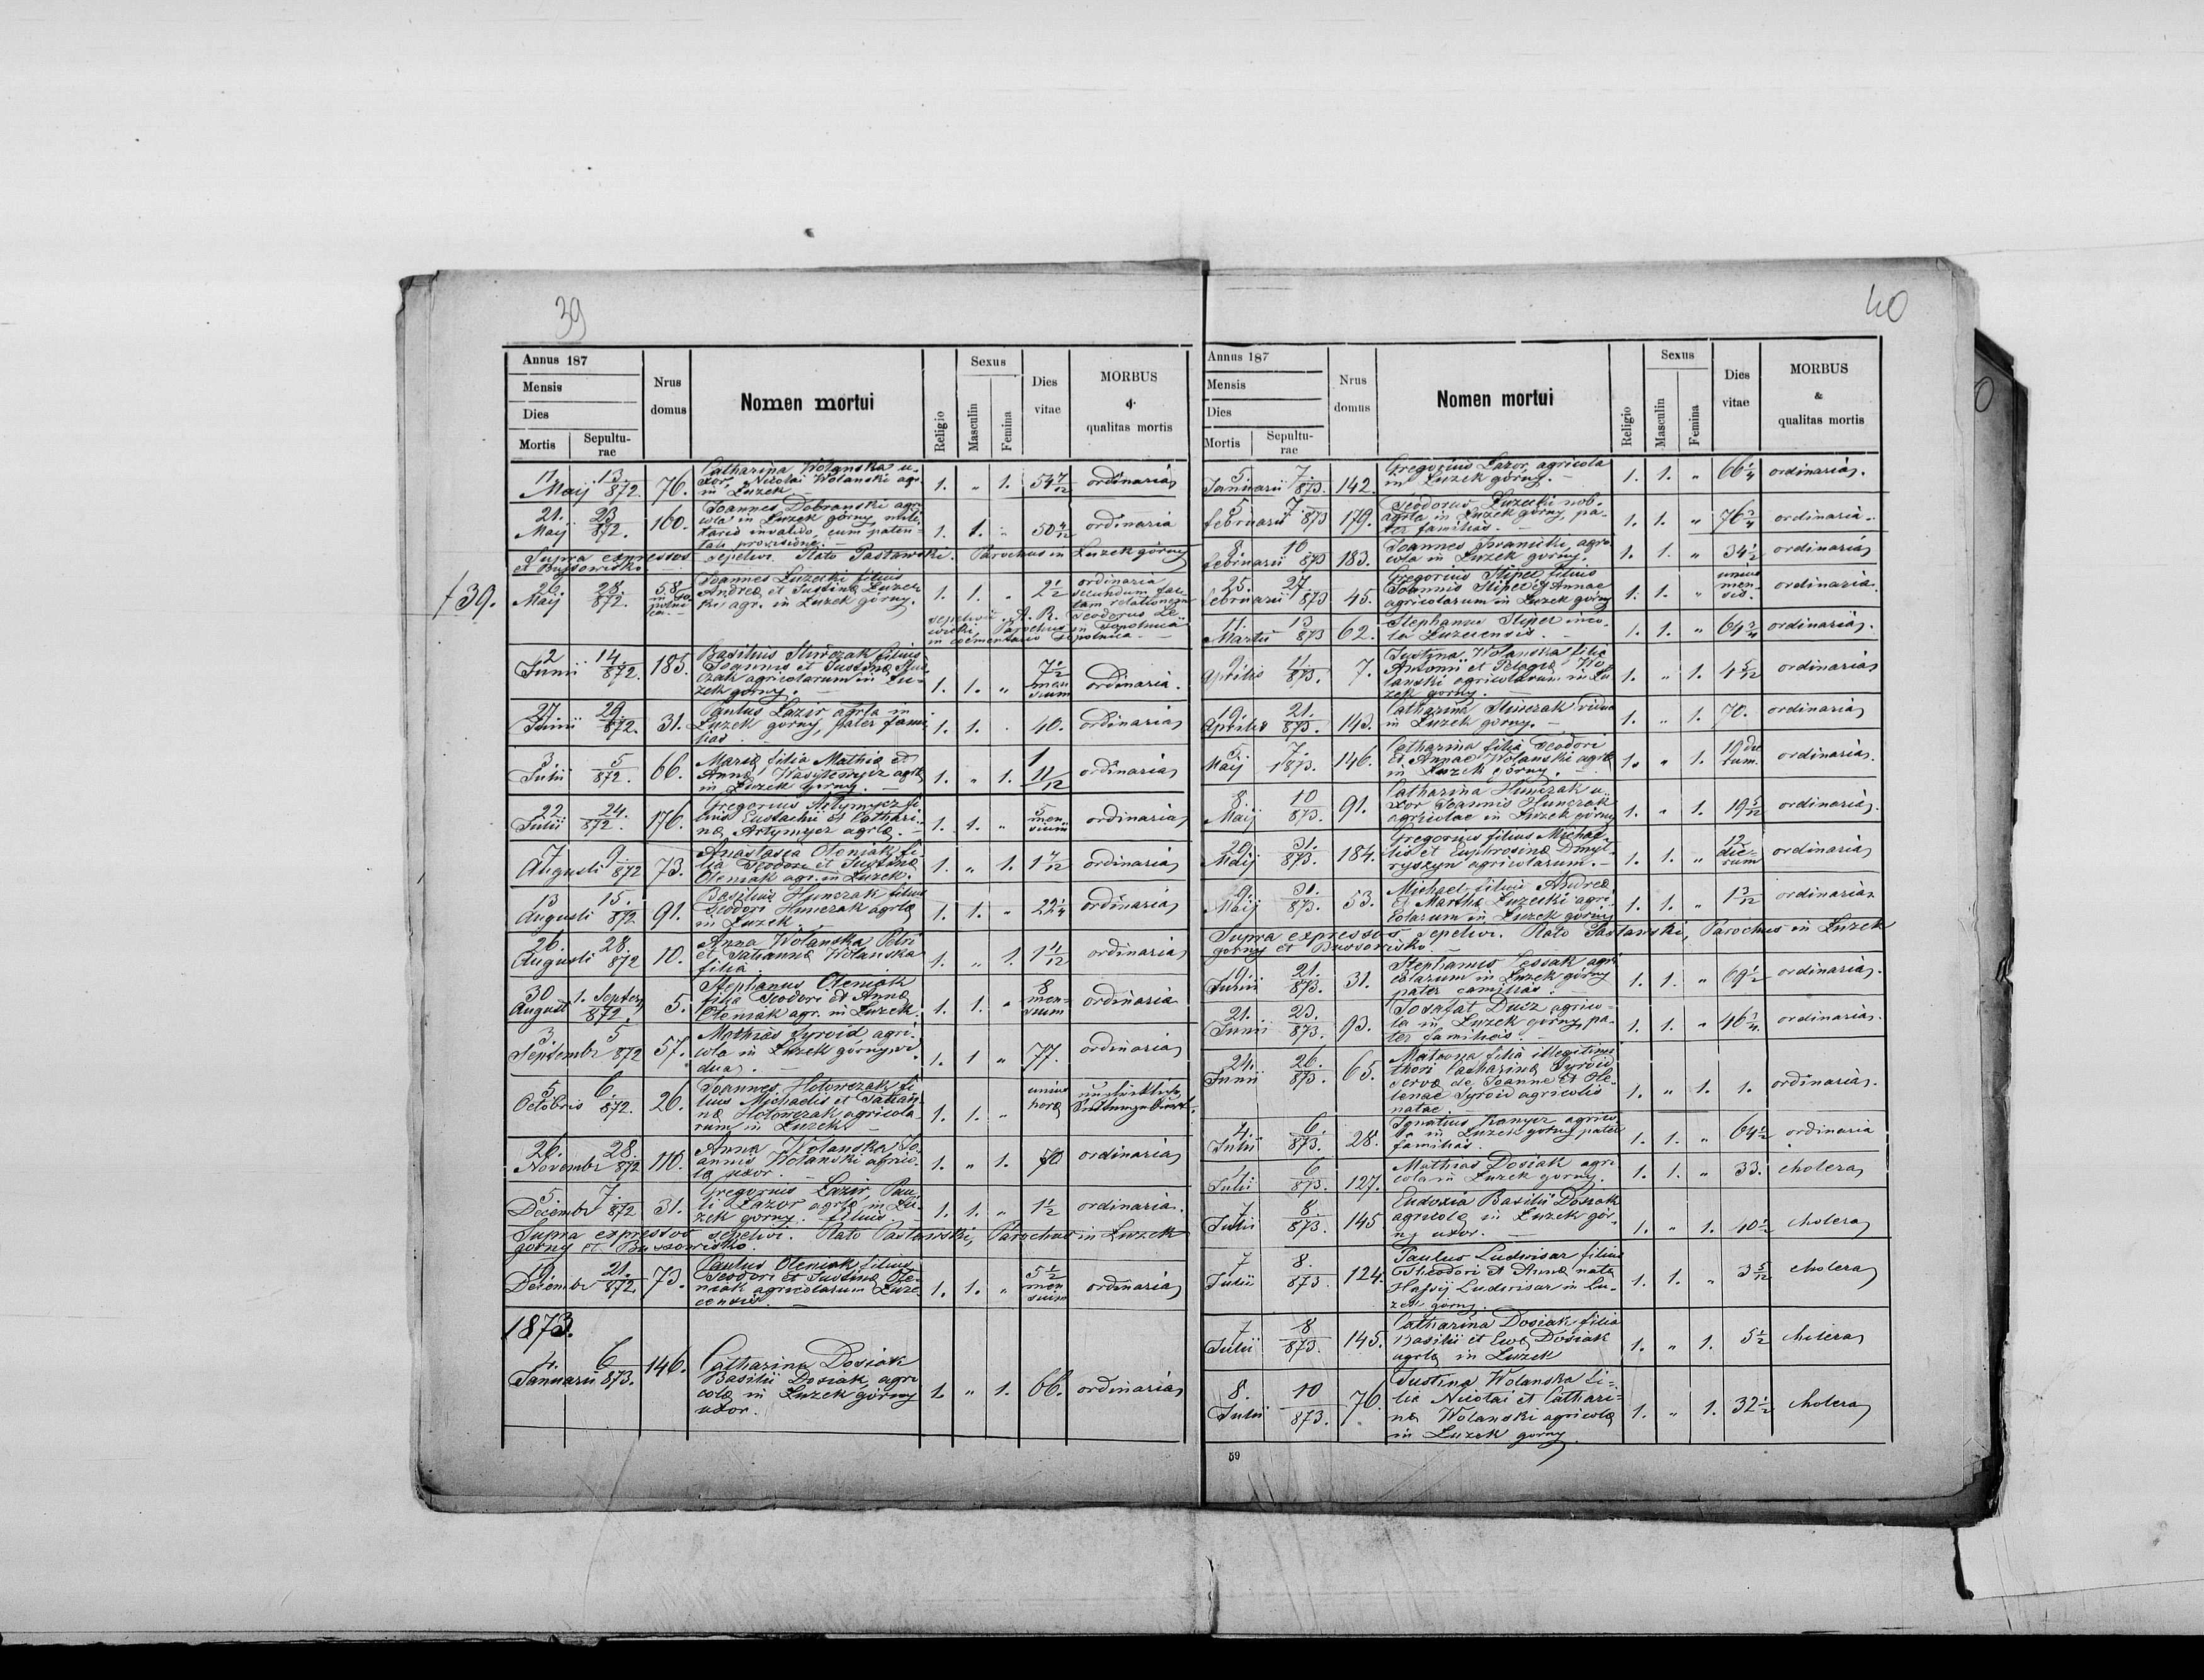 39
Annus 187
Mensis
Dies
Mortis
Sepultu-
rae
Nrus
domus
Nomen mortui
Religio
Sexus
Masculin
Femina
Dies
vitae
MORBUS
&
qualitas mortis
11. Maij 13. 872. 76. Catharina Wolanska u-
xor Nicolai Wolanski agr.
in Luzek 1. „ 1. 54 ordinaria
21. Maij 23 872. 160. Joannes Dobranski agri-
cola in Luzek górny, mili-
tario invalido, cum paten-
tali provisione. 1. 1. „ 50 ordinaria
Supra expressos sepelivi. Plato Pasławski. Parochus in Luzek górny
et Bussowisko.
139.
26. Maij 28. 872. 58 Joannes Luzecki filius
Andreæ et Justinæ Luzec-
ki, agr. in Luzek górny. 1. 1. „ 2 1/2 ordinaria
secundum fac-
tam relationem
sepelivit A. R. Teodorus
Parochus in Topolnica
in coementario Topolnica.
2 Junii 14 872. 185. Basilius Hunczak filius
Joannis et Justinæ Hun-
czak agricolarum in Lu-
zek górny. 1. 1. „ 7 1/2
men
sium ordinaria.
27 Junii 29 872. 31. Paulus Lazir agrla in
Luzek górny, pater fami
lias 1. 1. 40. ordinaria
3. Julii 5 872. 66. Maria filia Mathiæ et
Annæ Wasilewycz agrlæ
in Luzek górny. 1. „ 1. 1 11/12 ordinaria
22 Julii 24. 872. 176. Gregorius Artymycz fi-
lius Eustachii et Cathari-
næ Artymycz agrlæ. 1. 1. „ 5
men
sium ordinaria
7 Augusti 9 872 73. Anastasia Oleniak fi-
lia Teodori et Justinæ
Oleniak agr. in Luzek. 1. „ 1. 1 ordinaria
13 Augusti 15. 872. 91. Basilius Hunczak filius
Teodori Hunczak agrlæ
in Luzek. 1. 1. „ 22 1/4 ordinaria
26. Augusti 28. 872 10. Anna Wolanska Petri
et Tatiannæ Wolanska
filia. 1. „ 1. 1 ordinaria
30 August 1. Septem 872. 5. Stephanus Oleniak
filia Teodori et Annæ
Oleniak agr. in Luzek. 1. 1. „ 8
men-
sium ordinaria
3. Septembr 5 872 57. Mathias Syroid, agri-
cola in Luzek górny, vi-
dua. 1. 1 „ 77. ordinaria
5 Octobris 6. 872. 26. Joannes Hotowczak fi-
lius Michaelis et Tatian-
næ Hotowczak agricola
rum in Luzek 1. 1. „ unius
horæ
26. Novembr 28. 872 110. Anna Wolanska Jo-
annis Wolanski agrico-
la uxor. 1. „ 1. 70 ordinaria
5. Decembr 7. 872 31. Gregorius Lazir, Pau-
li Lazor agrlæ in Lu-
zek górny. filius 1. 1. „ 1 1/2 ordinaria.
Supra expressos sepelivi. Plato Pasławski, Parochus in Luzek
górny et Bussowisko.
19. Decembr 21. 872 73. Paulus Oleniak filius
Teodori et Justinæ Ole-
niak agricolarum Luze-
censis. 1. 1. „ 5 1/2
men
sium ordinaria
1873.
4. Januarii 6 873. 146. Catharina Dosiak
Basilii Dosiak, agri
colæ in Luzek górny
uxor. 1. „ 1. 66. ordinaria
40
Annus 187
Mensis
Dies
Mortis
Sepultu-
rae
Nrus
domus
Nomen mortui
Religio
Sexus
Masculin
Femina
Dies
vitae
MORBUS
&
qualitas mortis
5 Januarii 7 873. 142. Gregorius Lazor, agricola
in Luzek górny. 1. 1. „ 66 1/4 ordinaria.
5 februarii 7 873 179. Teodorus Luzecki nob.
agrla in Luzek górny, pa-
ter familias. 1. 1. „ 76 3/4 ordinaria.
8 februarii 10 873 183. Joannes Iwanicki, agri-
cola in Luzek górny. 1. 1. „ 34 1/2 ordinaria
25. februarii 27 873 45. Gregorius Stipec filius
Joannis Stipec & Annae
agricolarum in Luzek górny 1. 1. „ unius
men
sis. ordinaria.
11. Martii 13 873 62. Stephanus Stiper inco-
la Luzecensis. 1. 1. „ 64 3/4 ordinaria.
9 Aprilis 11 873. 7. Justina Wolanska filia
Antonii et Pelagiæ Wo-
lanski agricolarum in Lu-
zek górny. 1. „ 1. 4 5/12 ordinaria
19. Aprilis 21. 873. 143. Catharina Hunczak vidua
in Luzek górny. 1. „ 1. 70. ordinaria
5 Maij 7. 1873. 146. Catharina filia Teodori
et Annae Wolanski agrlæ
in Luzek górny. 1. „ 1. 19 die
rum. ordinaria.
8. Maij 10 873. 91. Catharina Hunczak u-
xor Joannis Hunczak
agricolae in Luzek górny 1. „ 1. 19 5/12 ordinaria.
29. Maij 31. 873. 184. Gregorius filius Michae-
lis et Euphrosinæ Dmyt-
ryszyn agricolarum. 1. 1. „ 12
die-
rum ordinaria
29. Maij 31. 873. 53. Michael filius Andreæ
et Marthæ Luzecki agri-
colarum in Luzek górny 1. 1. „ 1 ordinaria.
Supra expressos sepelivi. Plato Pasławski, Parochus in Luzek
górny et Bussowisko.
19 Junii 21. 873. 31. Stephanus Lessak agri
colarum in Luzek górny
pater familias. 1. 1. „ 69 1/2 ordinaria.
21. Junii 23. 873. 93. Josafat Ducz agrico-
la in Luzek górny, pa-
ter familias. 1. 1. „ 46 1/4 ordinaria.
24. Junii 26. 873. 65. Matrona filia illegitimi
thori Catharinæ Syroid,
servæ de Joanne et He-
lenae Syroid agricolis
natae. 1. „ 1. 1. ordinaria.
4. Julii 6. 873. 28. Ignatius Kranycz agrico
la in Luzek górny pater
familias. 1. 1. „ 64 1/2 ordinaria
4 Julii 6 873. 127. Mathias Dosiak agri
cola in Luzek górny. 1. 1. „ 33. cholera
7 Julii 8. 873. 145. Eudoxia Basilii Dosiak
agricolæ in Luzek gór-
ny uxor. 1. „ 1. 40 1/2 cholera
7 Julii 8. 873. 124. Paulus Ludwisar filius
Theodori et Annæ nata
Ludwisar in Lu-
zek górny. 1. 1. „ 3 5/12 cholera
7 Julii 8 873. 145. Catharina Dosiak filia
Basilii et Evæ Dosiak
agrlæ in Luzek 1. „ 1. 5 1/2 cholera
8. Julii 10 873. 76. Justina Wolanska fi-
lia Nicolai et Cathari-
næ Wolanski agricolæ
in Luzek górny. 1. „ 1. 32 1/2 cholera
59